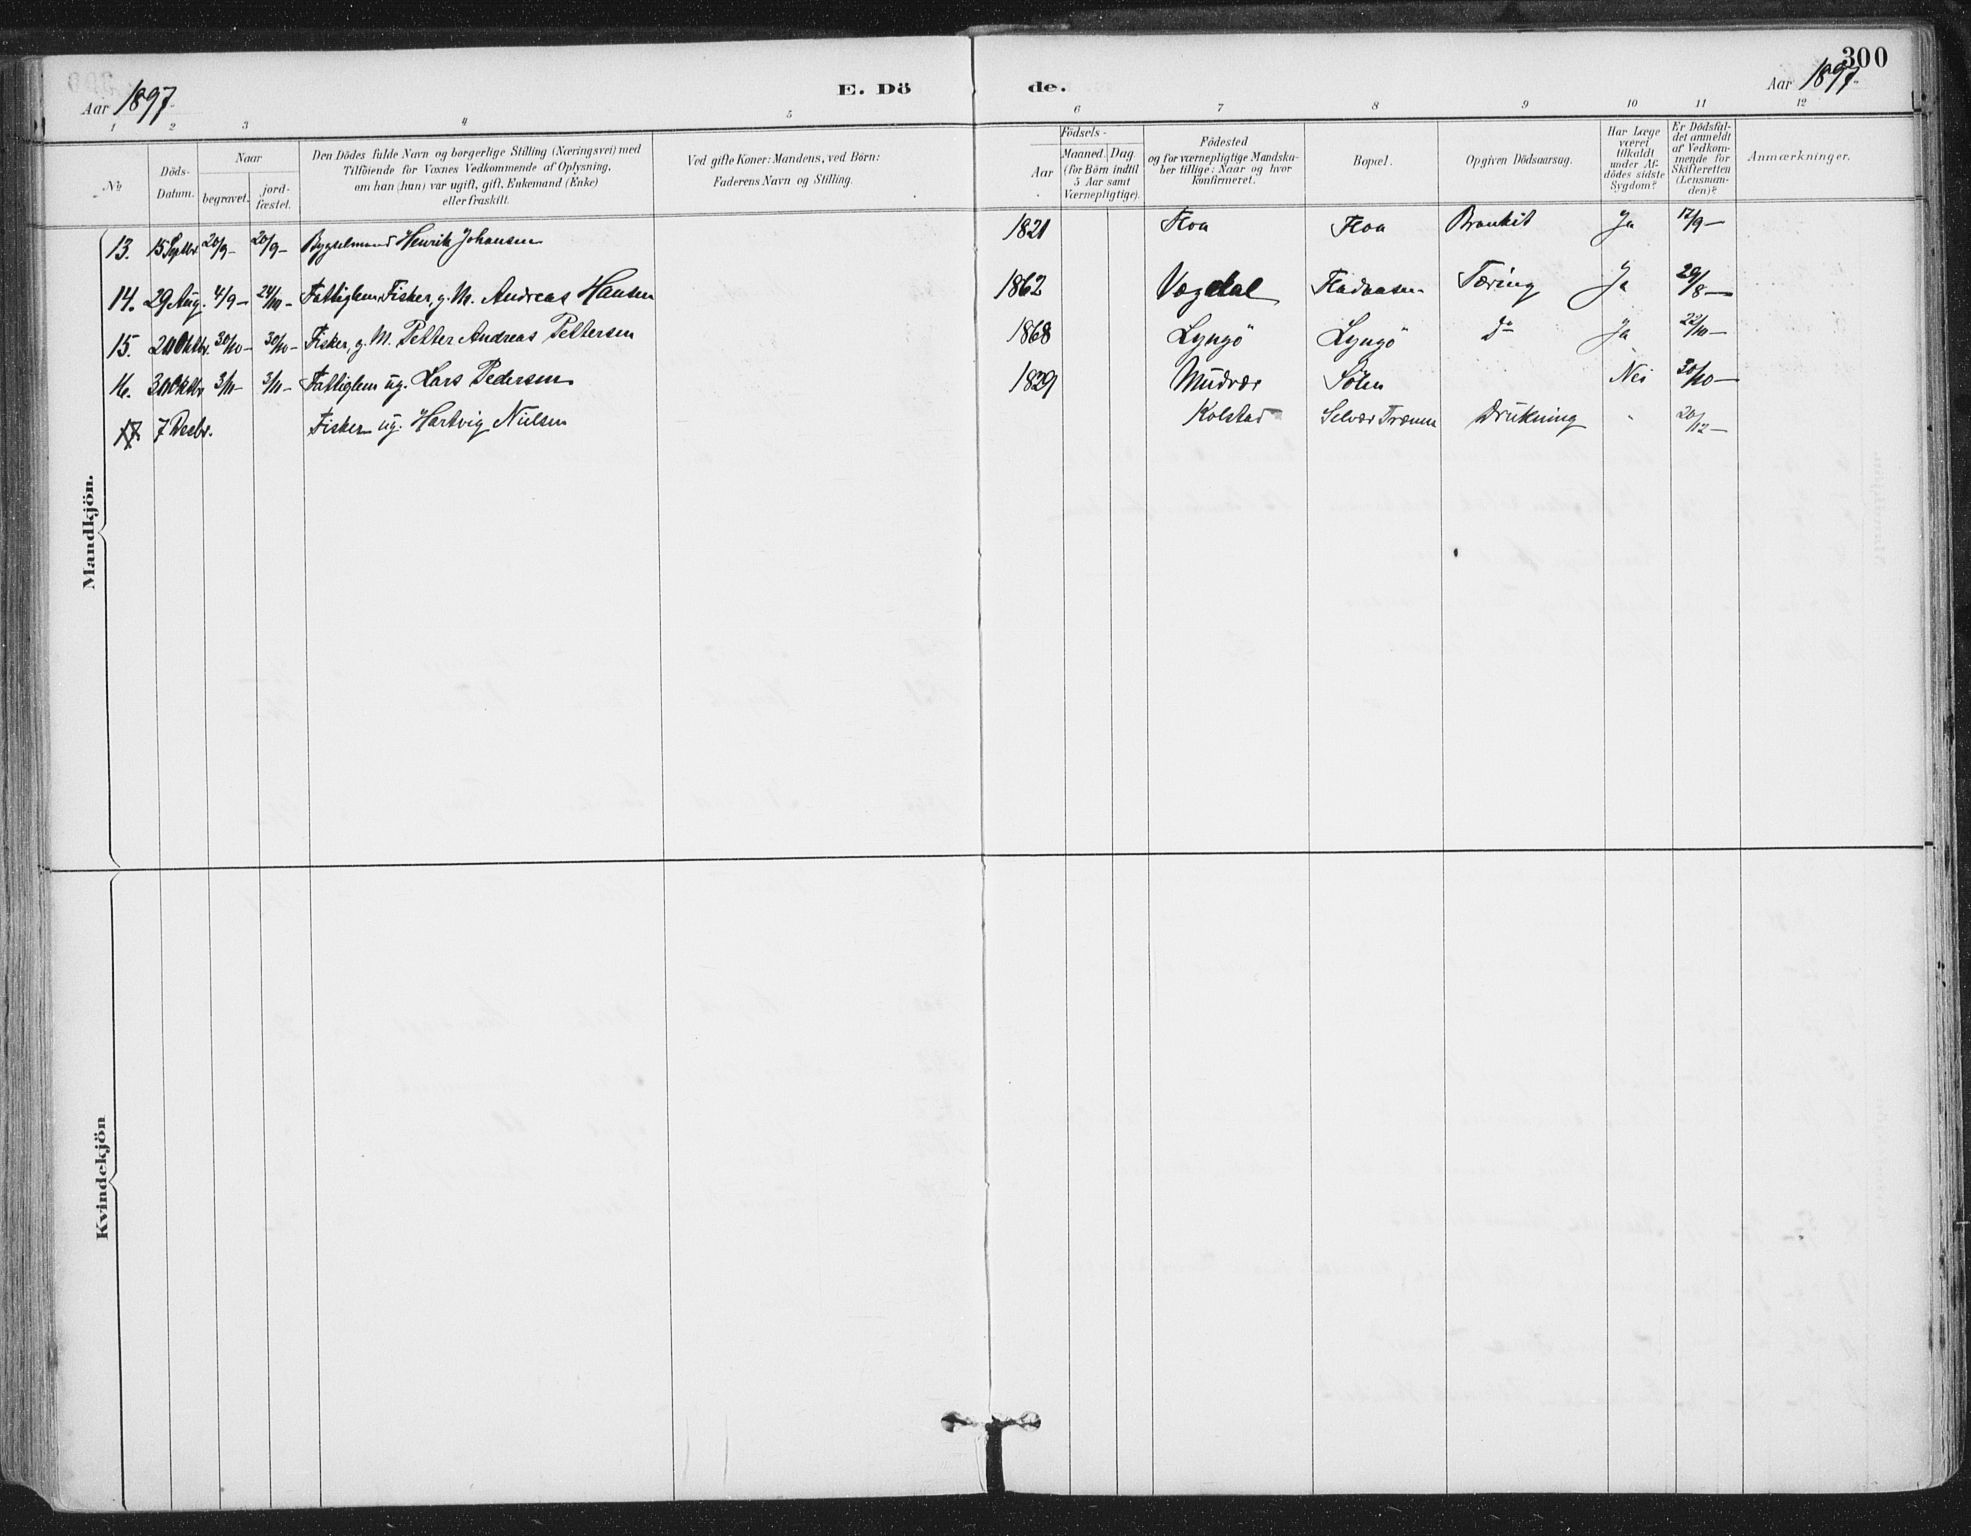 300
Aar 1897.
E. Dö
de.
Aar 1897.
1 2 3 4 5 6 7 8 9 10 11 12
No
Döds-
Datum.
Naar
begravet.
jord-
fæstet.
Den Dödes fulde Navn og borgerlige Stilling (Næringsvei) med
Tilföiende for Voxnes Vedkommende af Oplysning,
om han (hun) var ugift, gift, Enkemand (Enke)
eller fraskilt.
Ved gifte Koner: Mandens, ved Börn:
Faderens Navn og Stilling.
Födsels-
Aar
Maaned.
Dag
(for Börn indtil
5 Aar samt
Værnepligtige).
Födested
og for værnepligtige Mandska-
ber tillige: Naar og hvor
konfirmeret.
Bopæl.
Opgiven Dödsaarsag.
Har Læge
været
tilkaldt
under Af-
dödes sidste
Sygdom?
Er Dödsfal-
det anmeldt
af Vedkom-
mende for
Skifteretten
(Lensman-
den)?
Anmærkninger.
Mandkjön.
13. 15 Septbr 20/9- 20/9- Bygselmand Henrik Johansen 1821 Floa Floa Bronkit Ja 17/9-
14. 29 Aug. 4/9- 24/10- Fattiglem, Fisker, g. M. Andreas Hansen 1862 Vægdal Tæring Ja 29/8-
15. Oktbr. 30/10- 30/10- Fisker, g. M. Petter Andreas Pettersen 1868 Lyngö Lyngö Do Ja 22/10-
16. Oktbr 3/11- 3/11- Fattiglem ug. Lars Pedersen 1829 Mudvær Sölen Nei 30/10-
17. 7 Desbr. Fisker ug. Hartvig Nielsen Kolstad Selvær Trænen Drukning 20/12-
Kvindekjön